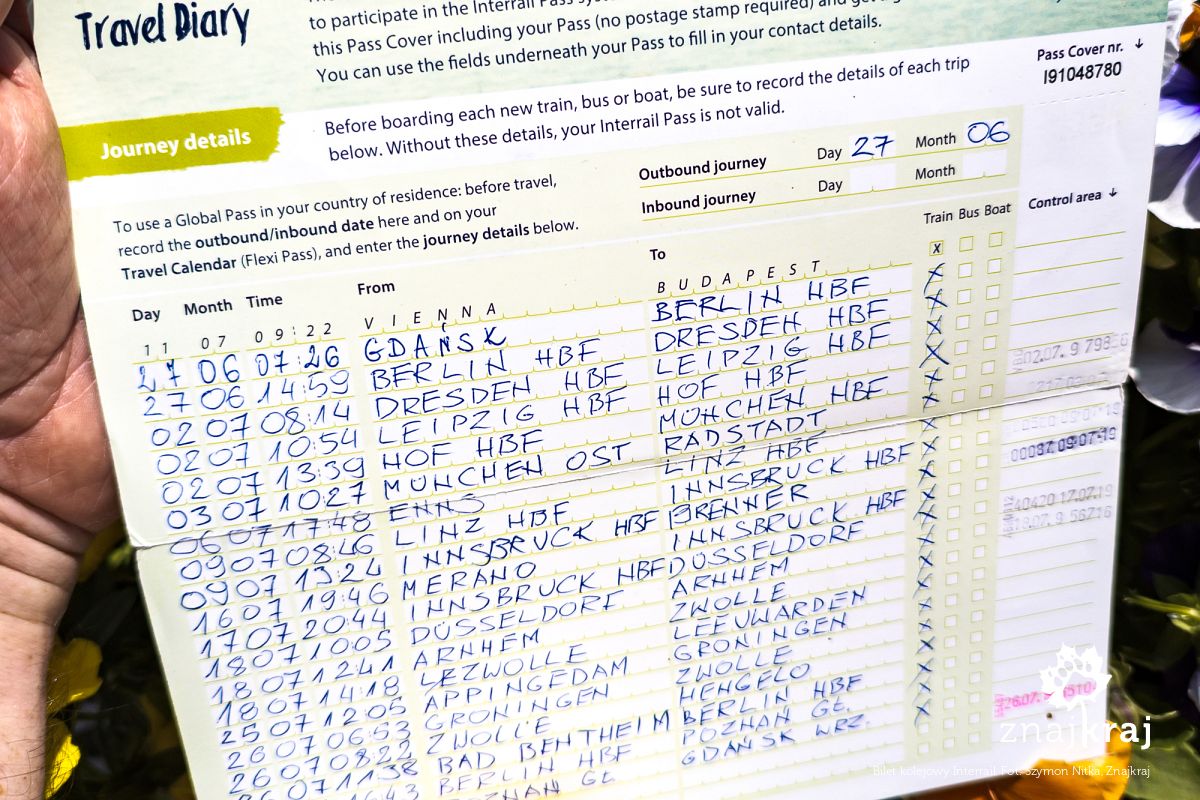 Travel Diary
to participate in the Interrail Pass
this Pass Cover including your Pass (no postage stamp required) and get a
You can use the fields underneath your Pass to fill in your contact details.
Pass Cover nr. ↓
I91048780
Journey details
Before boarding each new train, bus or boat, be sure to record the details of each trip
below. Without these details, your Interrail Pass is not valid.
To use a Global Pass in your country of residence: before travel,
record the outbound/inbound date here and on your
Travel Calendar (Flexi Pass), and enter the journey details below.
Outbound journey Day 27 Month 06
Inbound journey Day Month
Day Month Time From To Train Bus Boat Control area ↓
11 07 09:22 VIENNA BUDAPEST x
27 06 07:26 GDAŃSK BERLIN HBF x
27 06 14:59 BERLIN HBF DRESDEN HBF x
02 07 08:14 DRESDEN HBF LEIPZIG HBF x
02 07 10:54 LEIPZIG HBF HOF HBF x
02 07 13:39 HOF HBF MÜNCHEN HBF x
03 07 10:27 MÜNCHEN OST RADSTADT x
06 07 17:48 ENNS LINZ HBF x
09 07 08:46 LINZ HBF INNSBRUCK HBF x
09 07 13:24 INNSBRUCK HBF BRENNER x
16 07 19:46 MERANO INNSBRUCK HBF x
17 07 20:44 INNSBRUCK HBF DÜSSELDORF x
18 07 10:05 DÜSSELDORF ARNHEM x
18 07 12:41 ARNHEM ZWOLLE x
18 07 14:18 ZWOLLE LEEUWARDEN x
25 07 12:05 APPINGEDAM GRONINGEN x
26 07 06:53 GRONINGEN ZWOLLE x
26 07 08:22 ZWOLLE HENGELO x
26 07 11:38 BAD BENTHEIM BERLIN HBF x
16:43 BERLIN HBF POZNAŃ GŁ. x
POZNAŃ GŁ. GDAŃSK WRZ.
znajkraj
Bilet kolejowy Interrail. Fot. Szymon Nitka, Znajkraj